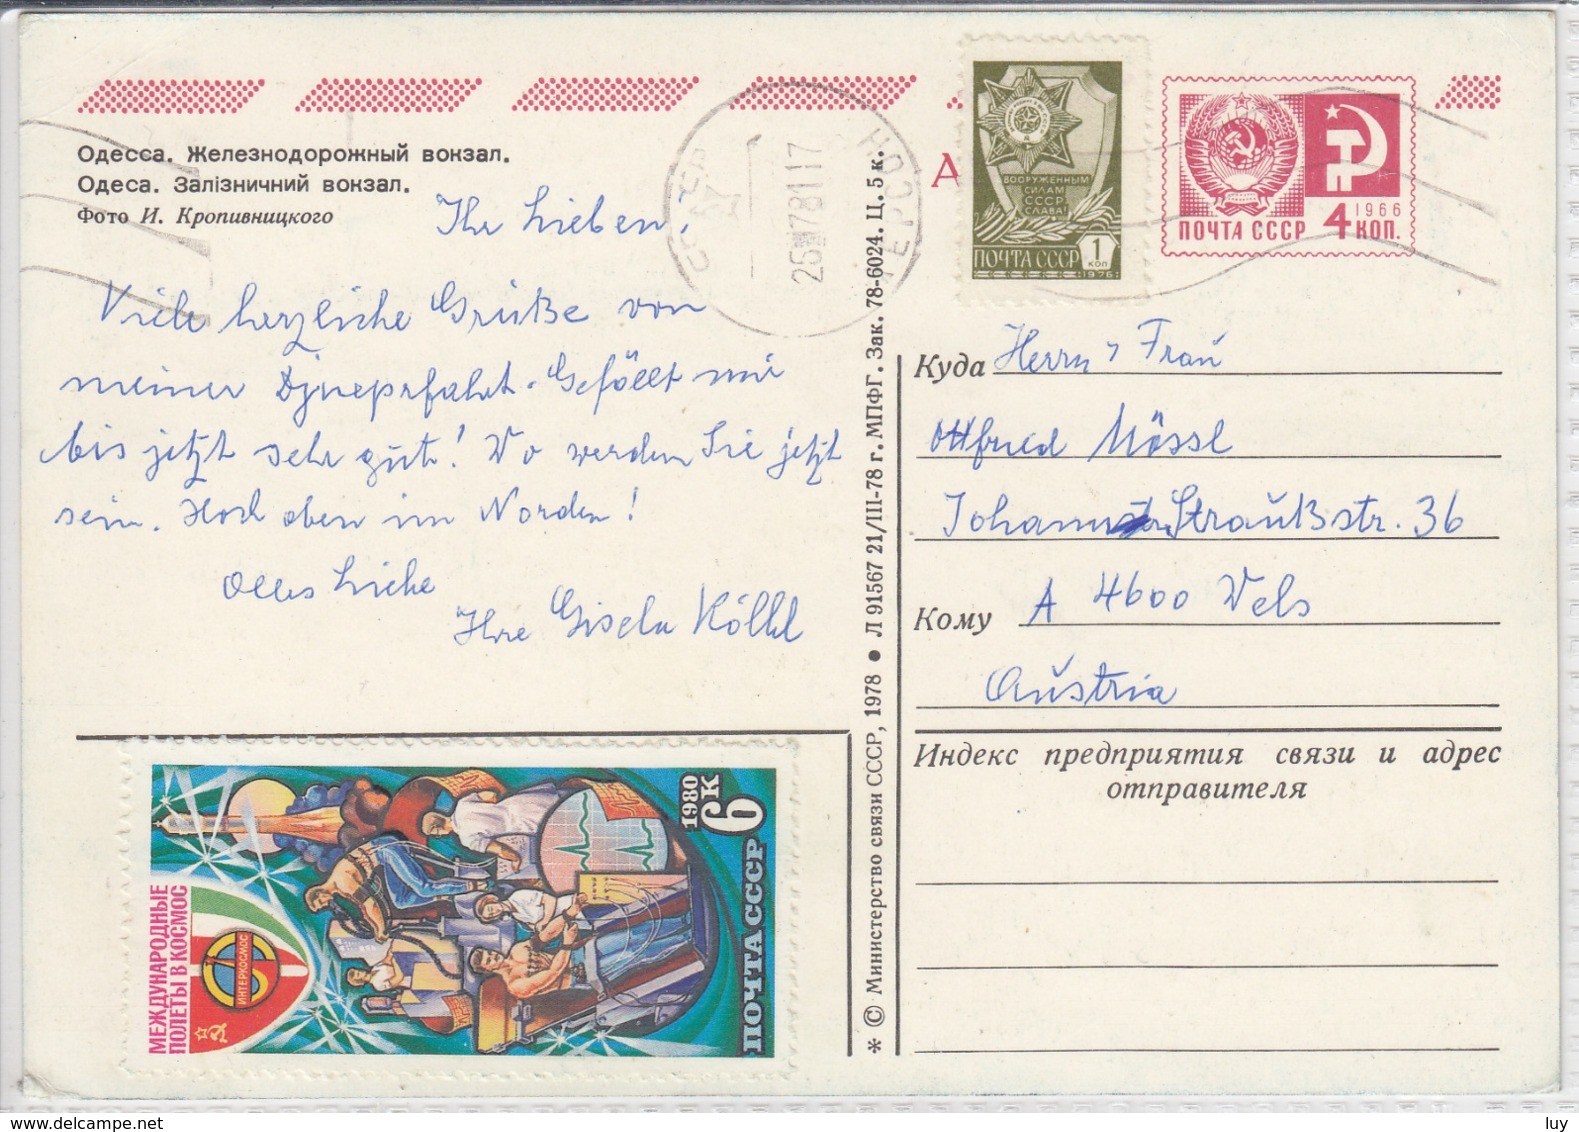 Одесса. Железнодорожный вокзал.
Одеса. Залізничний вокзал.
Фото И. Кропивницкого
Ihr Lieben!
Viele herzliche Grüße von
meiner Djneprfahrt. Gefällt mir
bis jetzt sehr gut! Wo werden Sie jetzt
sein. Hoch oben im Norden!
Alles Liebe
Ihre Gisela Kölbl
МЕЖДУНАРОДНЫЕ
ПОЛЕТЫ В КОСМОС
ИНТЕРКОСМОС
1980
6К
ПОЧТА СССР
* © Министерство связи СССР, 1978 ● Л 91567 21/III-78 г. МПФГ. Зак. 78-6024. Ц. 5 к.
СССР
26 78 11 17
А
ВООРУЖЕННЫМ
СИЛАМ
СССР
СЛАВА!
ПОЧТА СССР 1
КОП
1976
1966
ПОЧТА СССР 4 КОП.
Куда Herrn + Frau
Ottfried Mössl
Johann Straußstr. 36
Кому A 4600 Wels
Austria
Индекс предприятия связи и адрес
отправителя
luy